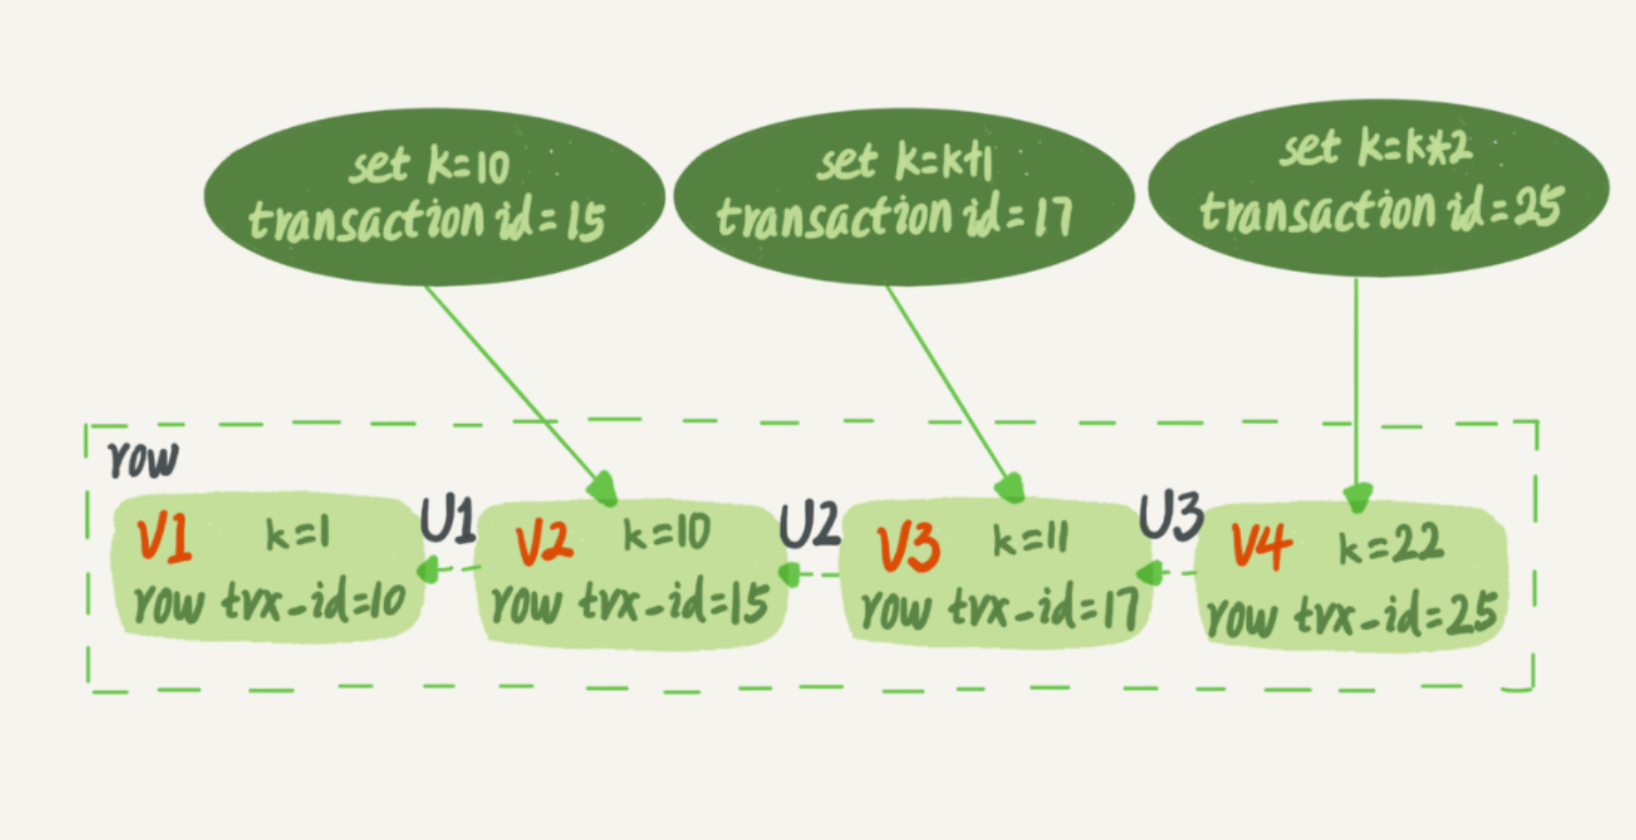 set k=10
transaction id=15
set k=k+1
transaction id=17
set k=k*2
transaction id=25
row
V1 k=1
row trx_id=10
U1
V2 k=10
row trx_id=15
U2
V3 k=11
row trx_id=17
U3
V4 k=22
row trx_id=25